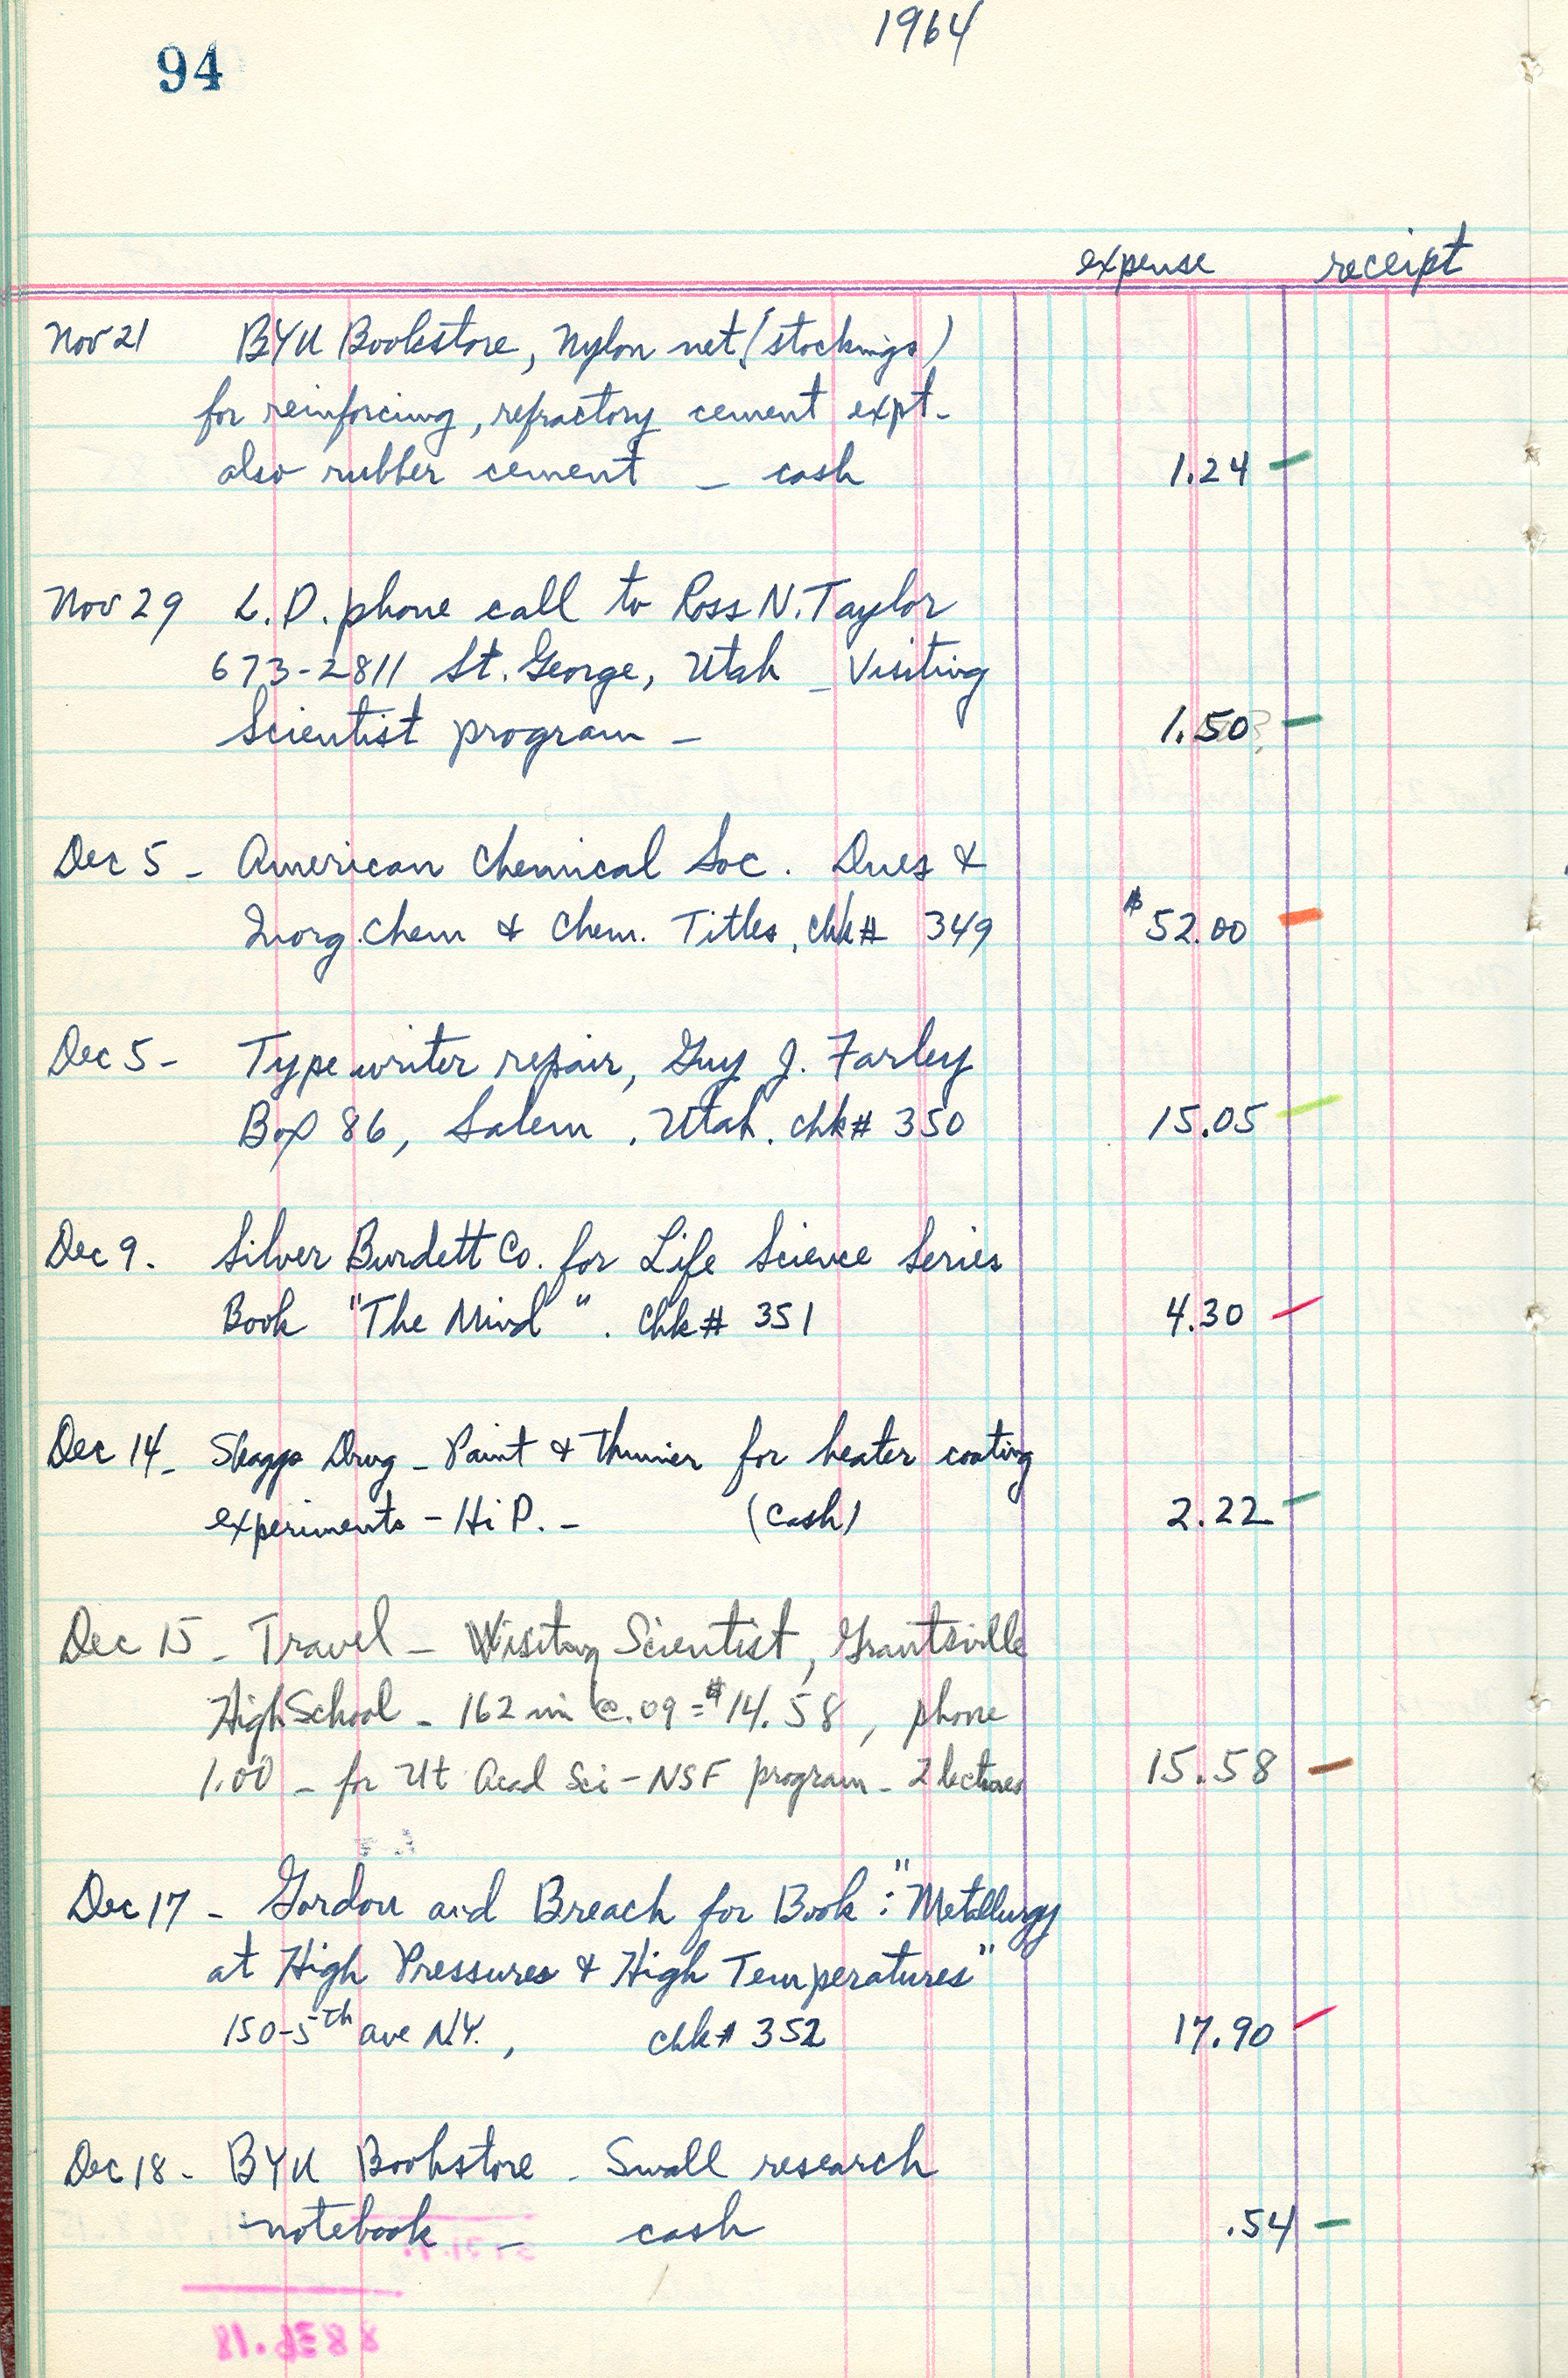 1964
94
expense receipt
Nov 21 BYU Bookstore, Nylon net (stockings)
for reinforcing, refractory cement expt-
also rubber cement - cash 1.24
Nov 29 L.D. phone call to Ross N. Taylor
673-2811 St. George, Utah - Visiting
Scientist program - 1.50
Dec 5 - American Chemical Soc. Dues &
Inorg. Chem & Chem. Titles, chk# 349 $52.00
Dec 5 - Typewriter repair, Guy J. Farley
Box 86, Salem, Utah. chk# 350 15.05
Dec 9. Silver Burdett Co. for Life Science Series
Book "The Mind". chk# 351 4.30
Dec 14 - Skaggs Drug - Paint & Thinner for heater coating
experiments - Hi P. - (Cash) 2.22
Dec 15 - Travel - Visiting Scientist, Grantsville
High School - 162 mi @ .09 = $14.58, phone
1.00 - for Ut Acad Sci - NSF program - 2 lectures 15.58
Dec 17 - Gordon and Breach for Book: "Metallurgy
at High Pressures & High Temperatures"
150-5th ave N.Y., chk# 352 17.90
Dec 18 - BYU Bookstore - Small research
notebook - cash .54